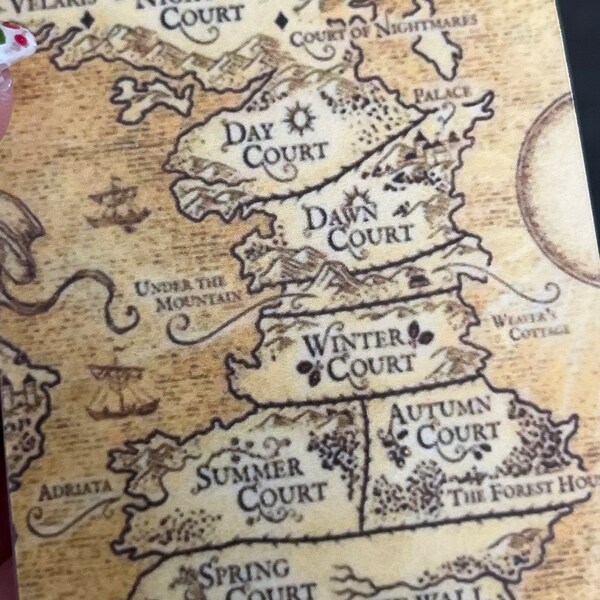 VELARIS
NIGHT
COURT
COURT OF NIGHTMARES
PALACE
DAY
COURT
DAWN
COURT
UNDER THE
MOUNTAIN
WEAVER'S
COTTAGE
WINTER
COURT
AUTUMN
COURT
SUMMER
COURT
ADRIATA
THE FOREST HOU
SPRING
COURT
WALL